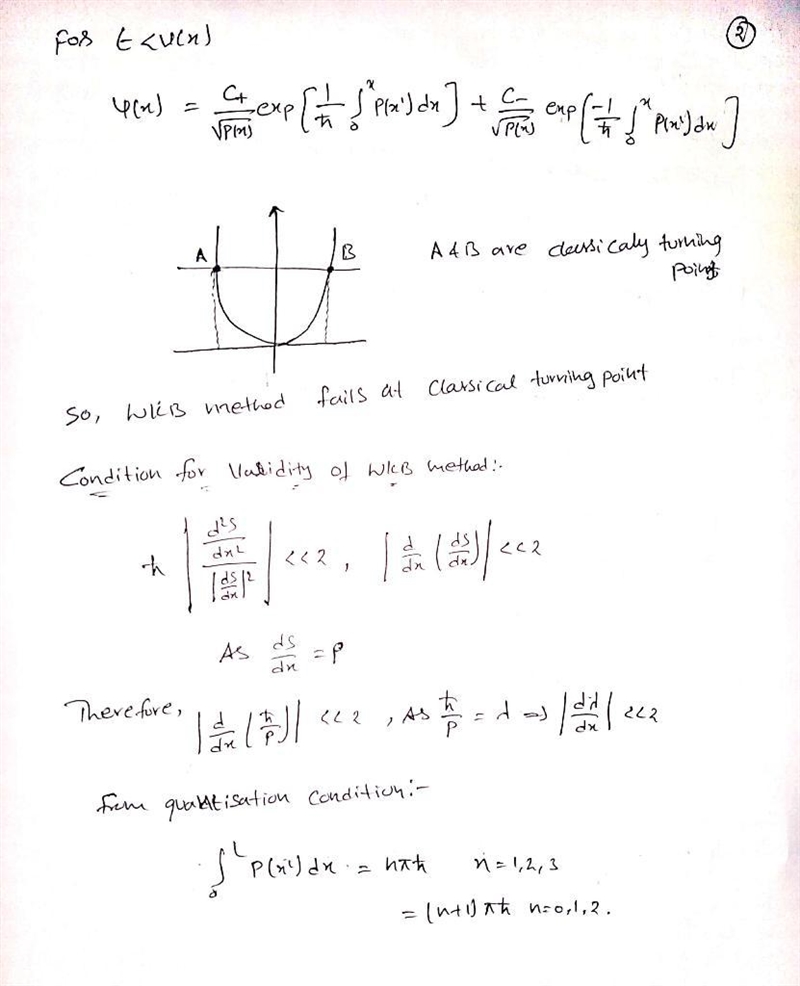 ②
for E < V(x)
ψ(x) = C₊/√P(x) exp[1/ħ ∫₀ˣ P(x')dx] + C₋/√P(x) exp[-1/ħ ∫₀ˣ P(x')dx]
A B
A & B are classicaly turning
points
So, WKB method fails at Classical turning point
Condition for Validity of WKB method:-
ħ | d²S/dx² / |dS/dx|² | << 2 , | d/dx (dS/dx) | << 2
As dS/dx = P
Therefore, | d/dx (ħ/P) | << 2 , As ħ/P = λ => | dλ/dx | << 2
from quantisation condition:-
∫₀ᴸ P(x')dx = nπħ n = 1,2,3
= (n+1)πħ n=0,1,2.